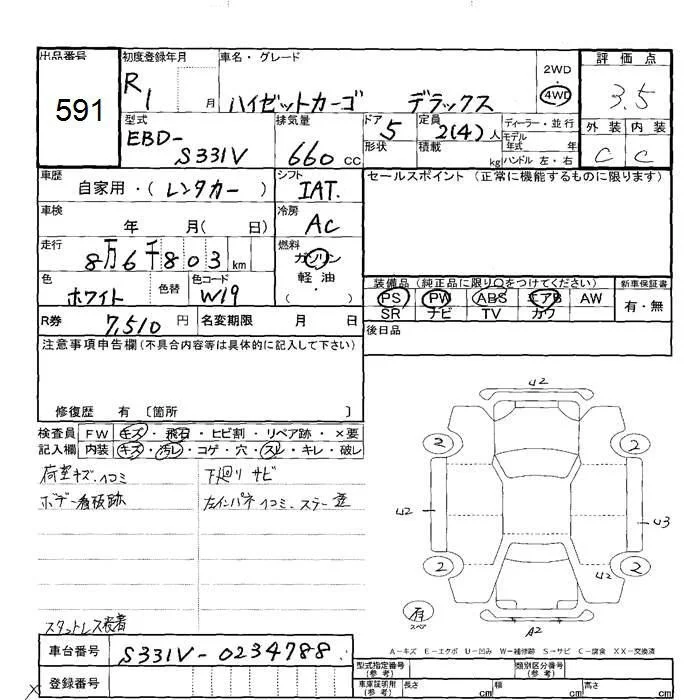 出品番号
591
初度登録年月
R1 月
車名・グレード
ハイゼットカーゴ デラックス
2WD
4WD
評価点
3.5
型式
EBD-
S331V
排気量
660 cc
ドア
5
形状
定員
2(4)人
積載
kg
ディーラー・並行
モデル
年式 年
ハンドル 左・右
外装 内装
C C
車歴
自家用・(レンタカー)
シフト
IAT.
セールスポイント (正常に機能するものに限ります)
車検
年 月( 日)
冷房
AC
走行
8万6千803 km
燃料
ガソリン
軽・油
( )
色
ホワイト
色替
色コード
W19
装備品 (純正品に限り〇をつけてください)
PS PW ABS エアB AW
SR ナビ TV カワ
新車保証書
有・無
R券
7,510 円
名変期限 月 日
後日品
注意事項申告欄(不具合内容等は具体的に記入して下さい)
修復歴 有 〔箇所 〕
検査員
記入欄
FW キズ・飛石・ヒビ割・リペア跡・×要
内装 キズ・汚レ・コゲ・穴・スレ・キレ・破レ
荷室キズ.ヘコミ
下廻り サビ
ボデー看板跡
左インパネ ヘコミ.
スタットレス装着
U2
2 2
U2
U3
U2
2 2
有
スペア
A2
A-キズ E-エクボ U-凹み W-補修跡 S-サビ C-腐食 XX-交換済
車台番号
S331V-0234788
登録番号
型式指定番号
(参考)
類別区分番号
(参考)
車庫証明用
(参考)
長さ cm
幅 cm
高さ cm